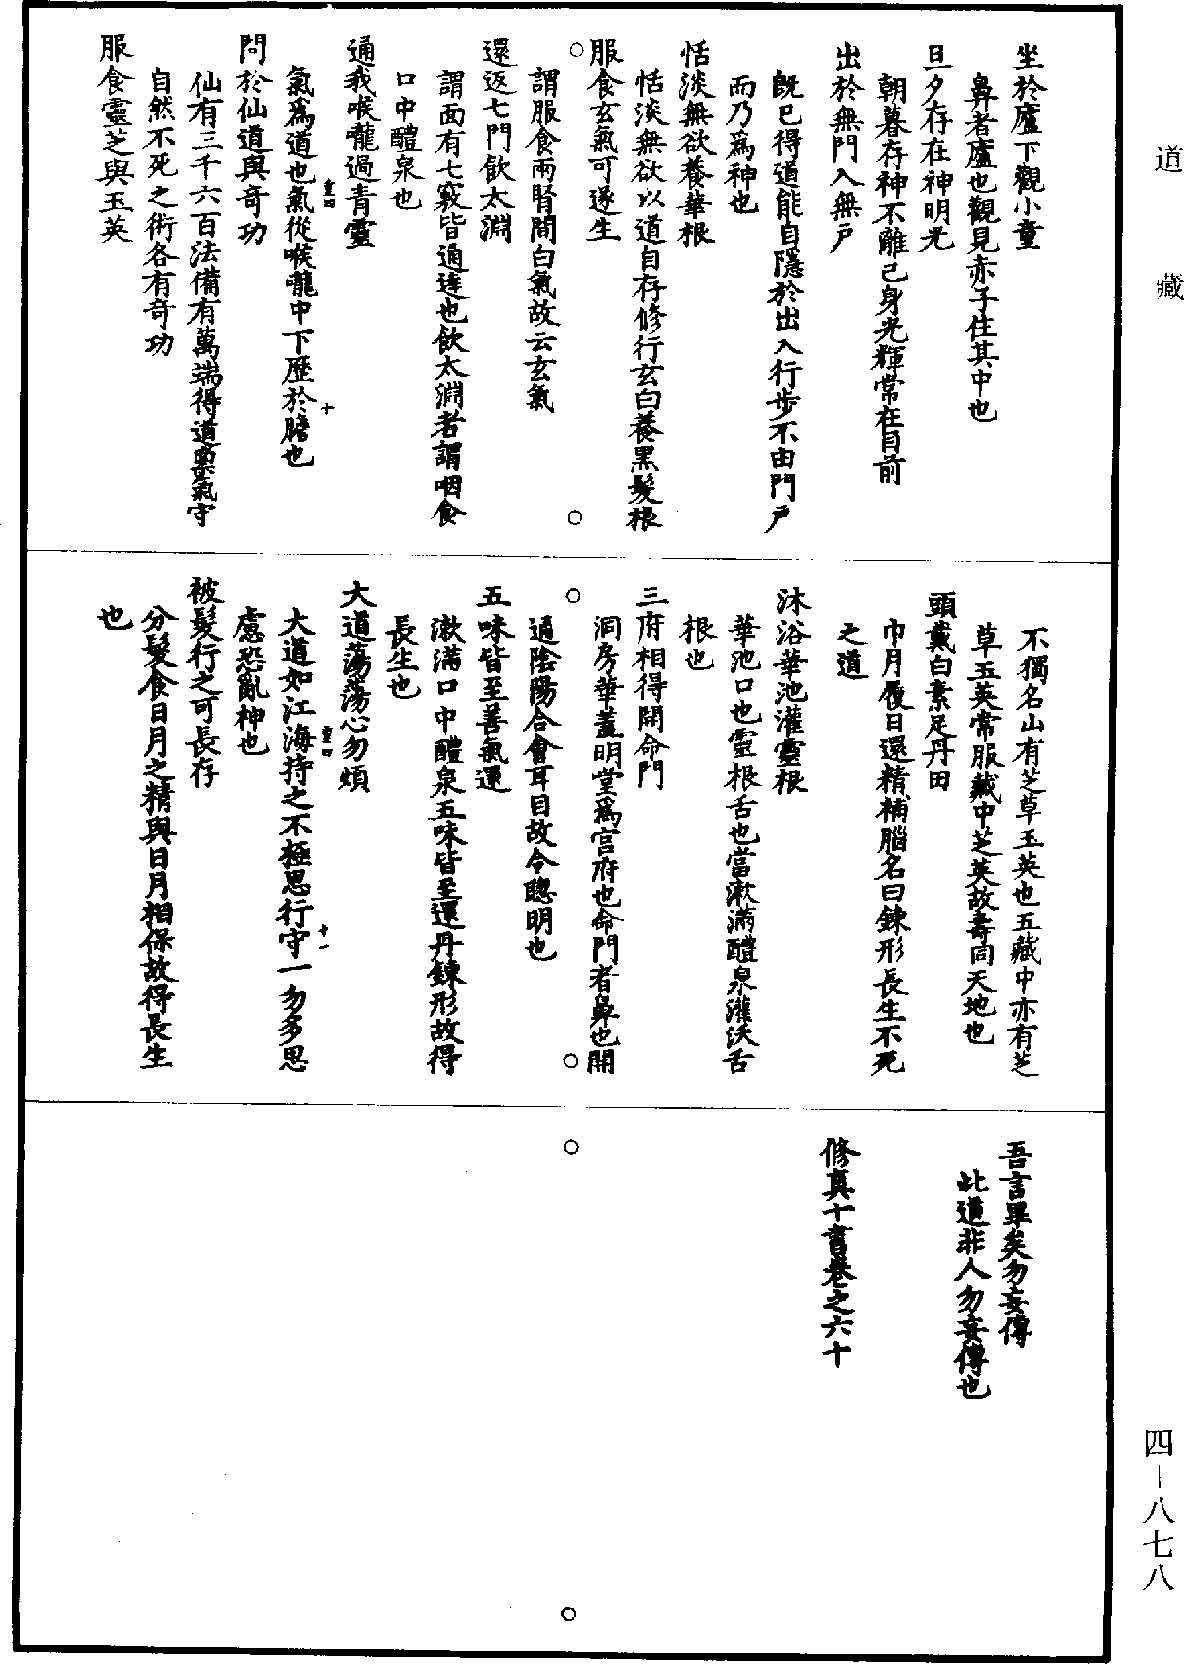 道藏
坐於廬下觀小童
鼻者廬也觀見赤子住其中也
旦夕存在神明光
朝暮存神不離己身光輝常在目前
出於無門入無戶
既已得道能自隱於出入行步不由門戶
而乃爲神也
恬淡無欲養華根
恬淡無欲以道自存修行玄白養黑髮根
服食玄氣可遂生
謂服食兩腎間白氣故云玄氣
還返七門飲太淵
謂面有七竅皆通達也飲太淵者謂咽食
口中醴泉也
通我喉嚨過青靈
氣爲道也氣從喉嚨中下歷於膽也
重四 十
問於仙道與奇功
仙有三千六百法備有萬端得道稟氣守
自然不死之術各有奇功
服食靈芝與玉英
不獨名山有芝草玉英也五藏中亦有芝
草玉英常服藏中芝英故壽同天地也
頭戴白素足丹田
巾月履日還精補腦名曰鍊形長生不死
之道
沐浴華池灌靈根
華池口也靈根舌也當漱滿醴泉灌沃舌
根也
三府相得開命門
洞房華蓋明堂爲宮府也命門者鼻也開
通陰陽合會耳目故令聰明也
五味皆至善氣還
漱滿口中醴泉五味皆至還丹鍊形故得
長生也
大道蕩蕩心勿煩
大道如江海持之不極思行守一勿多思
重四 十一
慮恐亂神也
被髮行之可長存
分髮食日月之精與日月相保故得長生
也
吾言畢矣勿妄傳
此道非人勿妄傳也
修真十書卷之六十
四－八七八